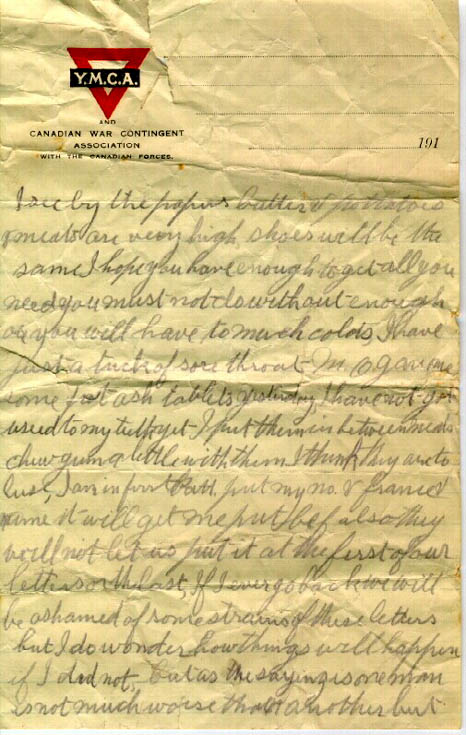 Y.M.C.A.
AND
CANADIAN WAR CONTINGENT
ASSOCIATION
WITH THE CANADIAN FORCES.
191
I see by the papers butter & potatoes
& meat are very high shoes will be the
same I hope you have enough to get all you
need you must not do without enough
or you will have to much colds, I have
just a tuck of sore throat M.O gave me
some tablets yesterday, I have not got
used to my teeth yet I put them in between meals
chew gum a little with them I think they are to
I am in first Batt. put my no. &
name it will get me put bef also they
will not let us put it at the first of our
letters or the last, If I ever go back we will
be ashamed of some strains of these letters
but I do wonder how things will happen
if I did not, but as the saying is one man
is not much worse than another but